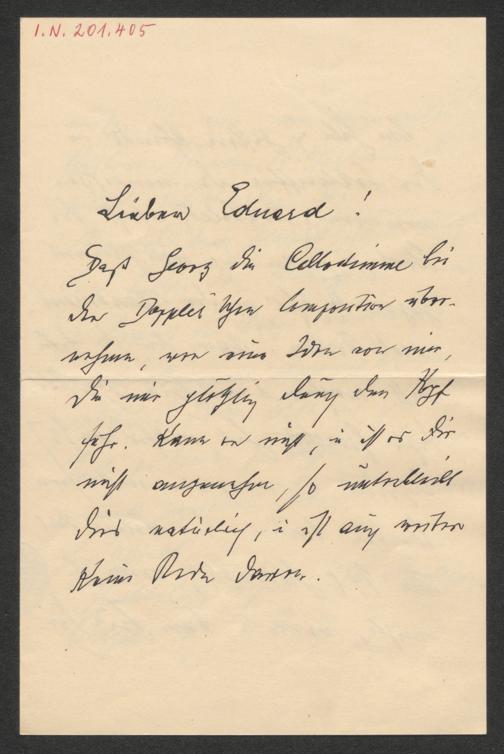 I.N. 201.405
Lieber Eduard!
Daß Georg die Cellostimme bei
der Doppler'schen Composition über-
nehme, war eine Idee von mir,
die mir plötzlich durch den Kopf
fuhr. Kann er nicht, u ist es Dir
nicht angenehm, so unterbleibt
dies natürlich, u ist auch weiter
keine Rede davon.